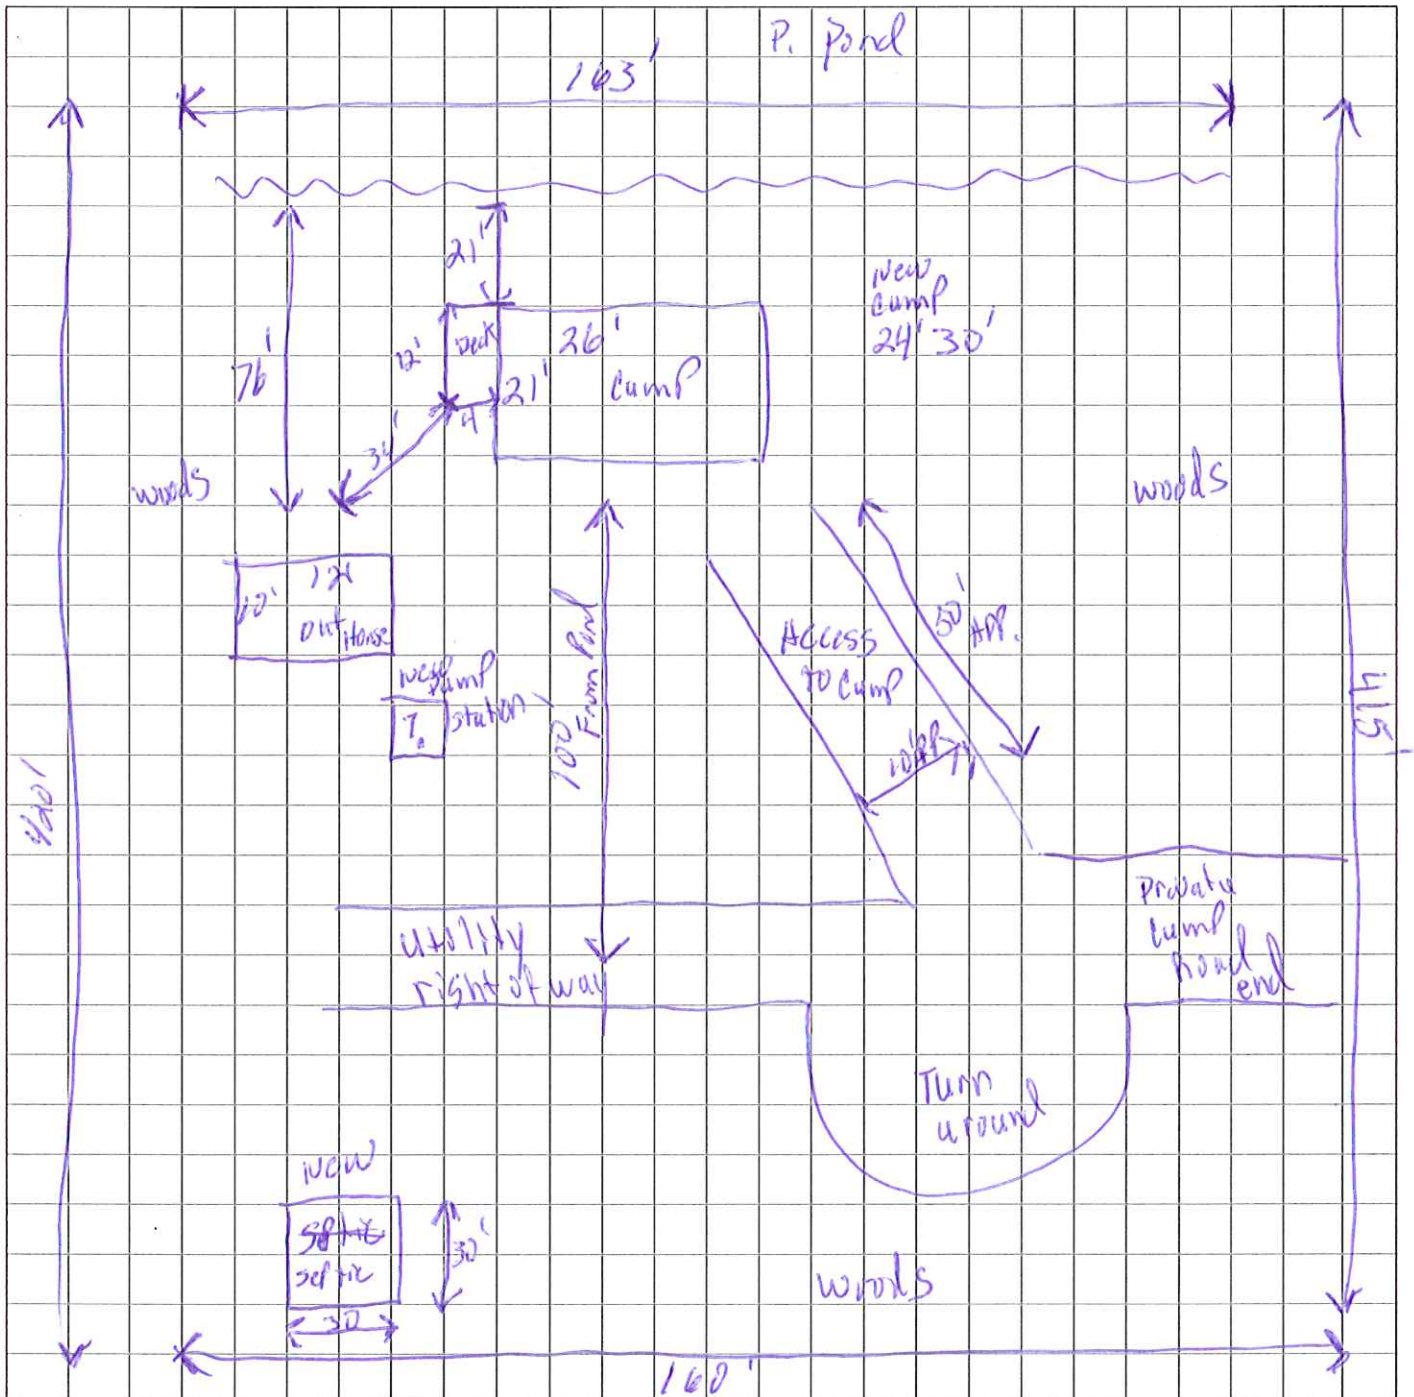 P. Pond
163'
21'
New
Camp
24' 30'
76'
12'
Deck
26'
21'
Camp
4'
woods
woods
10'
12'
Out House
New Pump
station
100'
From Pond
Access
To Camp
50' APP.
10' APP.
415'
420'
Private
Camp
Road
end
Utility
right of way
Turn
around
New
septic
30'
30
woods
160'